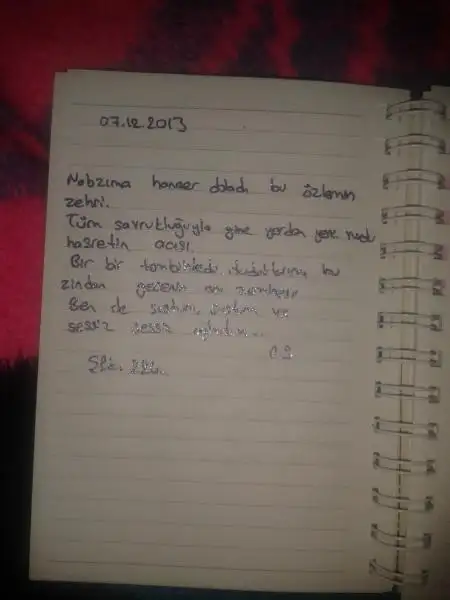 07.12.2013
Nabzıma hançer doladı bu özlemin
zehri.
Tüm savrukluğuyla gine yerden yere vurdu
hasretin acısı.
Bir bir tembihledi dudaklarıma bu
zindan gecenin
Ben de sustum, sustum ve
sessiz sessiz ağladım...